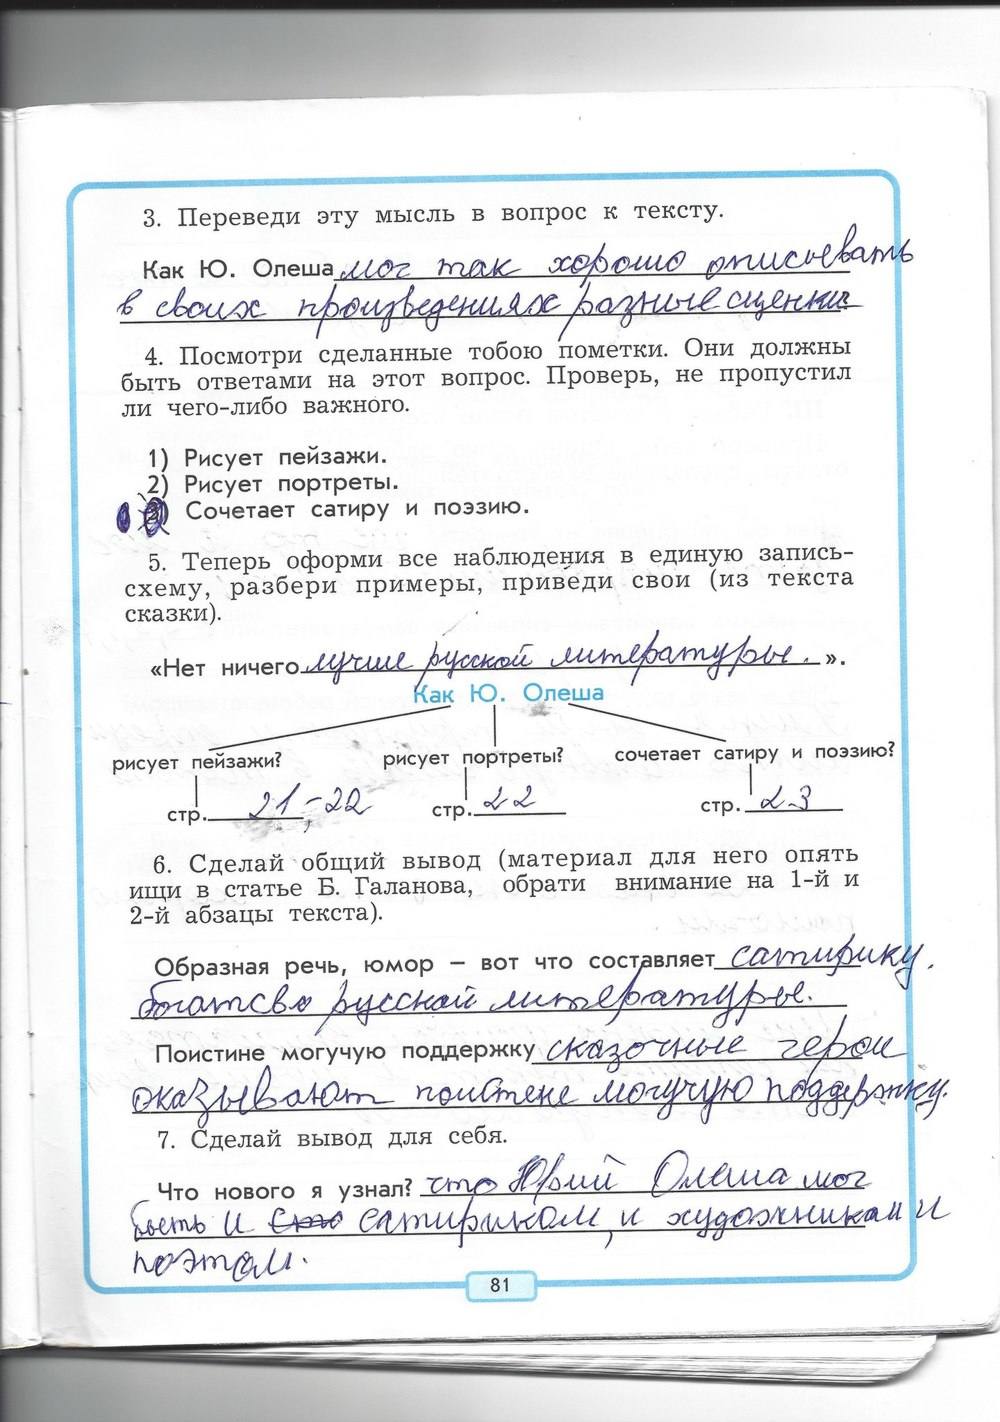 3. Переведи эту мысль в вопрос к тексту.
Как Ю. Олеша мог так хорошо описывать
в своих произведениях разные сценки
4. Посмотри сделанные тобою пометки. Они должны
быть ответами на этот вопрос. Проверь, не пропустил
ли чего-либо важного.
1) Рисует пейзажи.
2) Рисует портреты.
3) Сочетает сатиру и поэзию.
5. Теперь оформи все наблюдения в единую запись-
схему, разбери примеры, приведи свои (из текста
сказки).
«Нет ничего лучше русской литературы. ».
Как Ю. Олеша
рисует пейзажи? рисует портреты? сочетает сатиру и поэзию?
стр. 21,-22 стр. 22 стр. 23
6. Сделай общий вывод (материал для него опять
ищи в статье Б. Галанова, обрати внимание на 1-й и
2-й абзацы текста).
Образная речь, юмор – вот что составляет сатирику.
богатсво русской литературы.
Поистине могучую поддержку сказочные герои
оказывают поистене могучую поддержку.
7. Сделай вывод для себя.
Что нового я узнал? что Юрий Олеша мог
быть и сатириком, и художником и
поэтом.
81